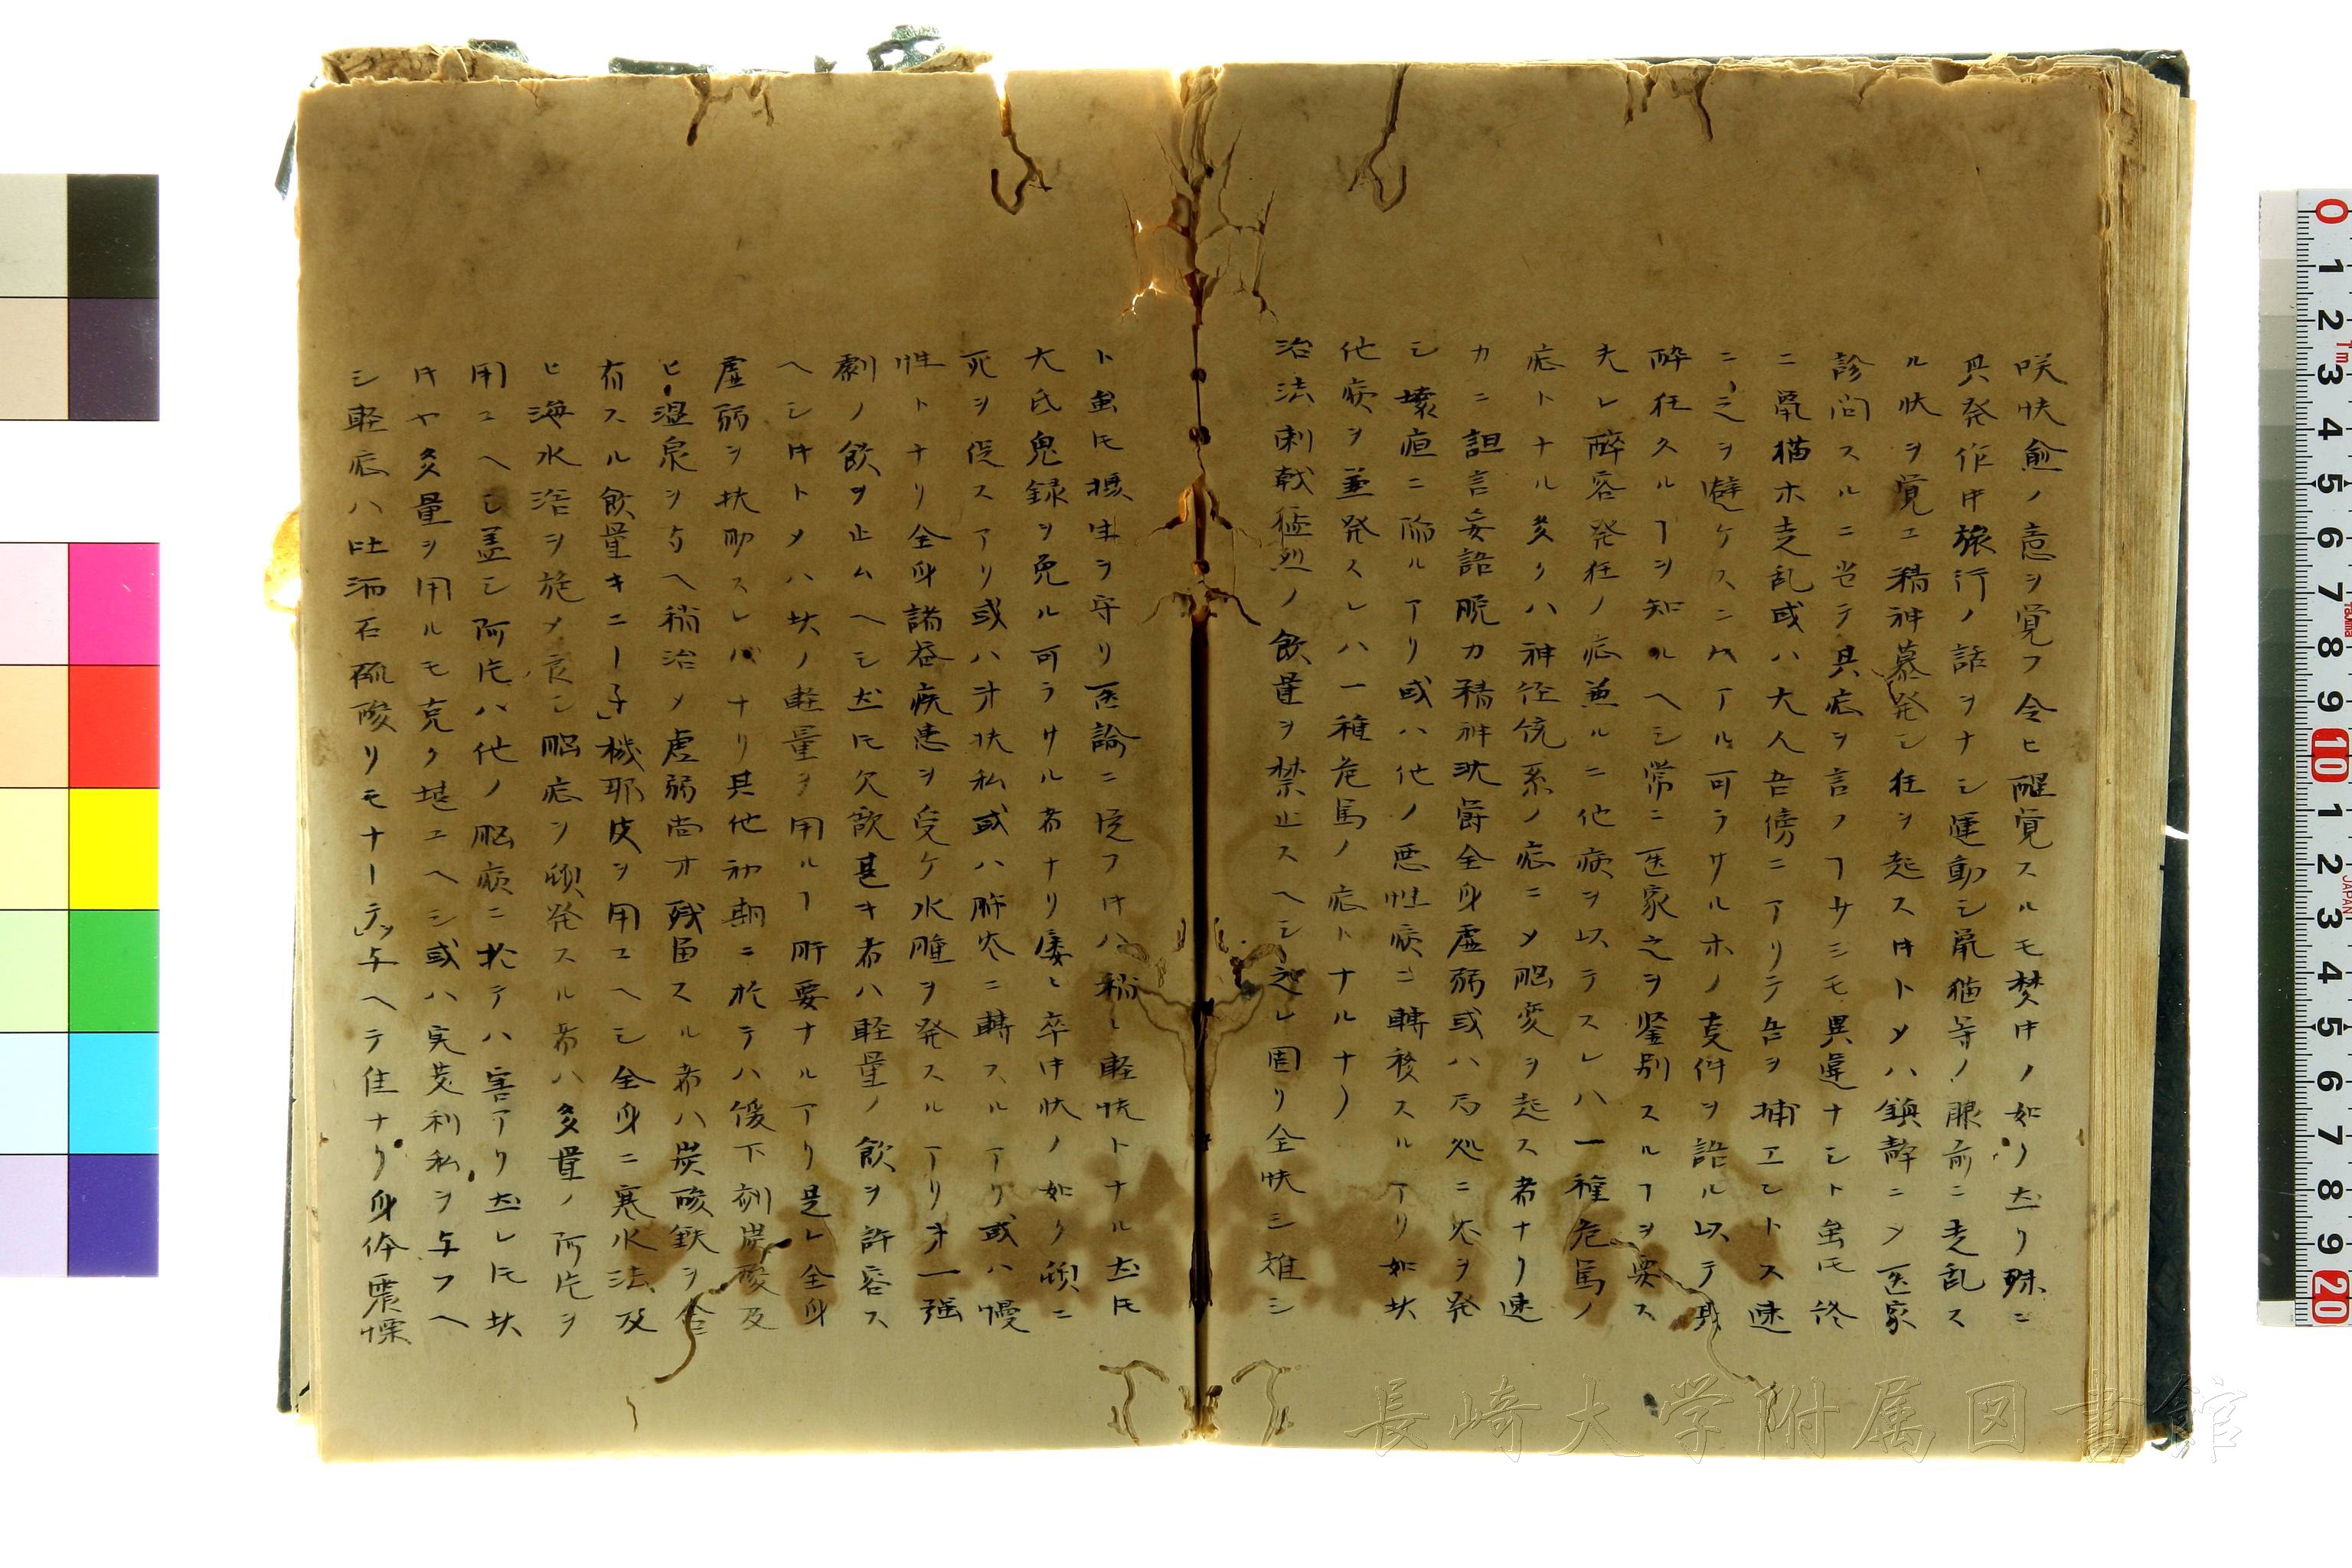 咲快愈ノ意ヲ覚フ令ヒ醒覚スルモ焚時ノ如ク左リ殊ニ
其発作時旅行ノ話ヲナシ運動シ鼠猫等ノ眼前ニ走乱ス
ル状ヲ覚エ精神暮発シ狂ヲ起ス时トメハ鎮静ニメ医家
診問スルニ当テ其症ヲ言フヿサシモ異違ナシト虽モ終
ニ鼠猫ホ走乱或ハ大人吾傍ニアリテ吾ヲ捕エントス速
ニ之ヲ避ケスンハアル可ラサルホノ支件ヲ語ル以テ其
酔狂タルヿヲ知ルヘシ常ニ医家之ヲ鑒別スルヿヲ要ス
夫レ酔客発狂ノ症兼ルニ他病ヲ以テスレハ一種危篤ノ
症トナル多クハ神径統系ノ症ニメ脳変ヲ起ス者ナリ速
カニ譫言妄語脱力精神沈鬱全身虚弱或ハ局処ニ炎ヲ発
シ壊疽ニ陥ルアリ或ハ他ノ悪性病ニ轉移スルアリ如此
他病ヲ兼発スレハ一種危篤ノ症トナルナリ
治法刺戟猛烈ノ飲量ヲ禁止スヘシ之レ固リ全快シ難シ
ト虽モ摂生ヲ守リ医論ニ従フ时ハ稍々軽快トナル左モ
大氐鬼録ヲ免ル可ラサル者ナリ屡々卒中状ノ如ク頓ニ
死ヲ促スアリ或ハ水扶私或ハ肺炎ニ轉スルアリ或ハ慢
性トナリ全身諸器疾患ヲ受ケ水腫ヲ発スルアリ第一強
劇ノ飲ヲ止ムヘシ左モ欠歆甚キ者ハ軽量ノ飲ヲ許容ス
ヘシ时トメハ此ノ軽量ヲ用ルヿ肝要ナルアリ是レ全身
虚弱ヲ扶助スレバナリ其他初期ニ於テハ緩下剤炭酸及
ヒ温泉ヲ与ヘ稍治メ虚弱尚オ残畄スル者ハ炭酸鉄ヲ含
有スル飲量キニー子」機耶皮ヲ用エヘシ全身ニ寒水法及
ヒ海水浴ヲ施メ良シ脳症ヲ頓発スル者ハ多量ノ阿片ヲ
用エヘシ盖シ阿片ハ他ノ脳病ニ於テハ害アリ左レ氏此
时ヤ多量ヲ用ルモ克ク堪エヘシ或ハ実芰利私ヲ与フヘ
シ軽症ハ吐酒石硫酸リモナーデ」ヲ与ヘテ佳ナリ身体震慄